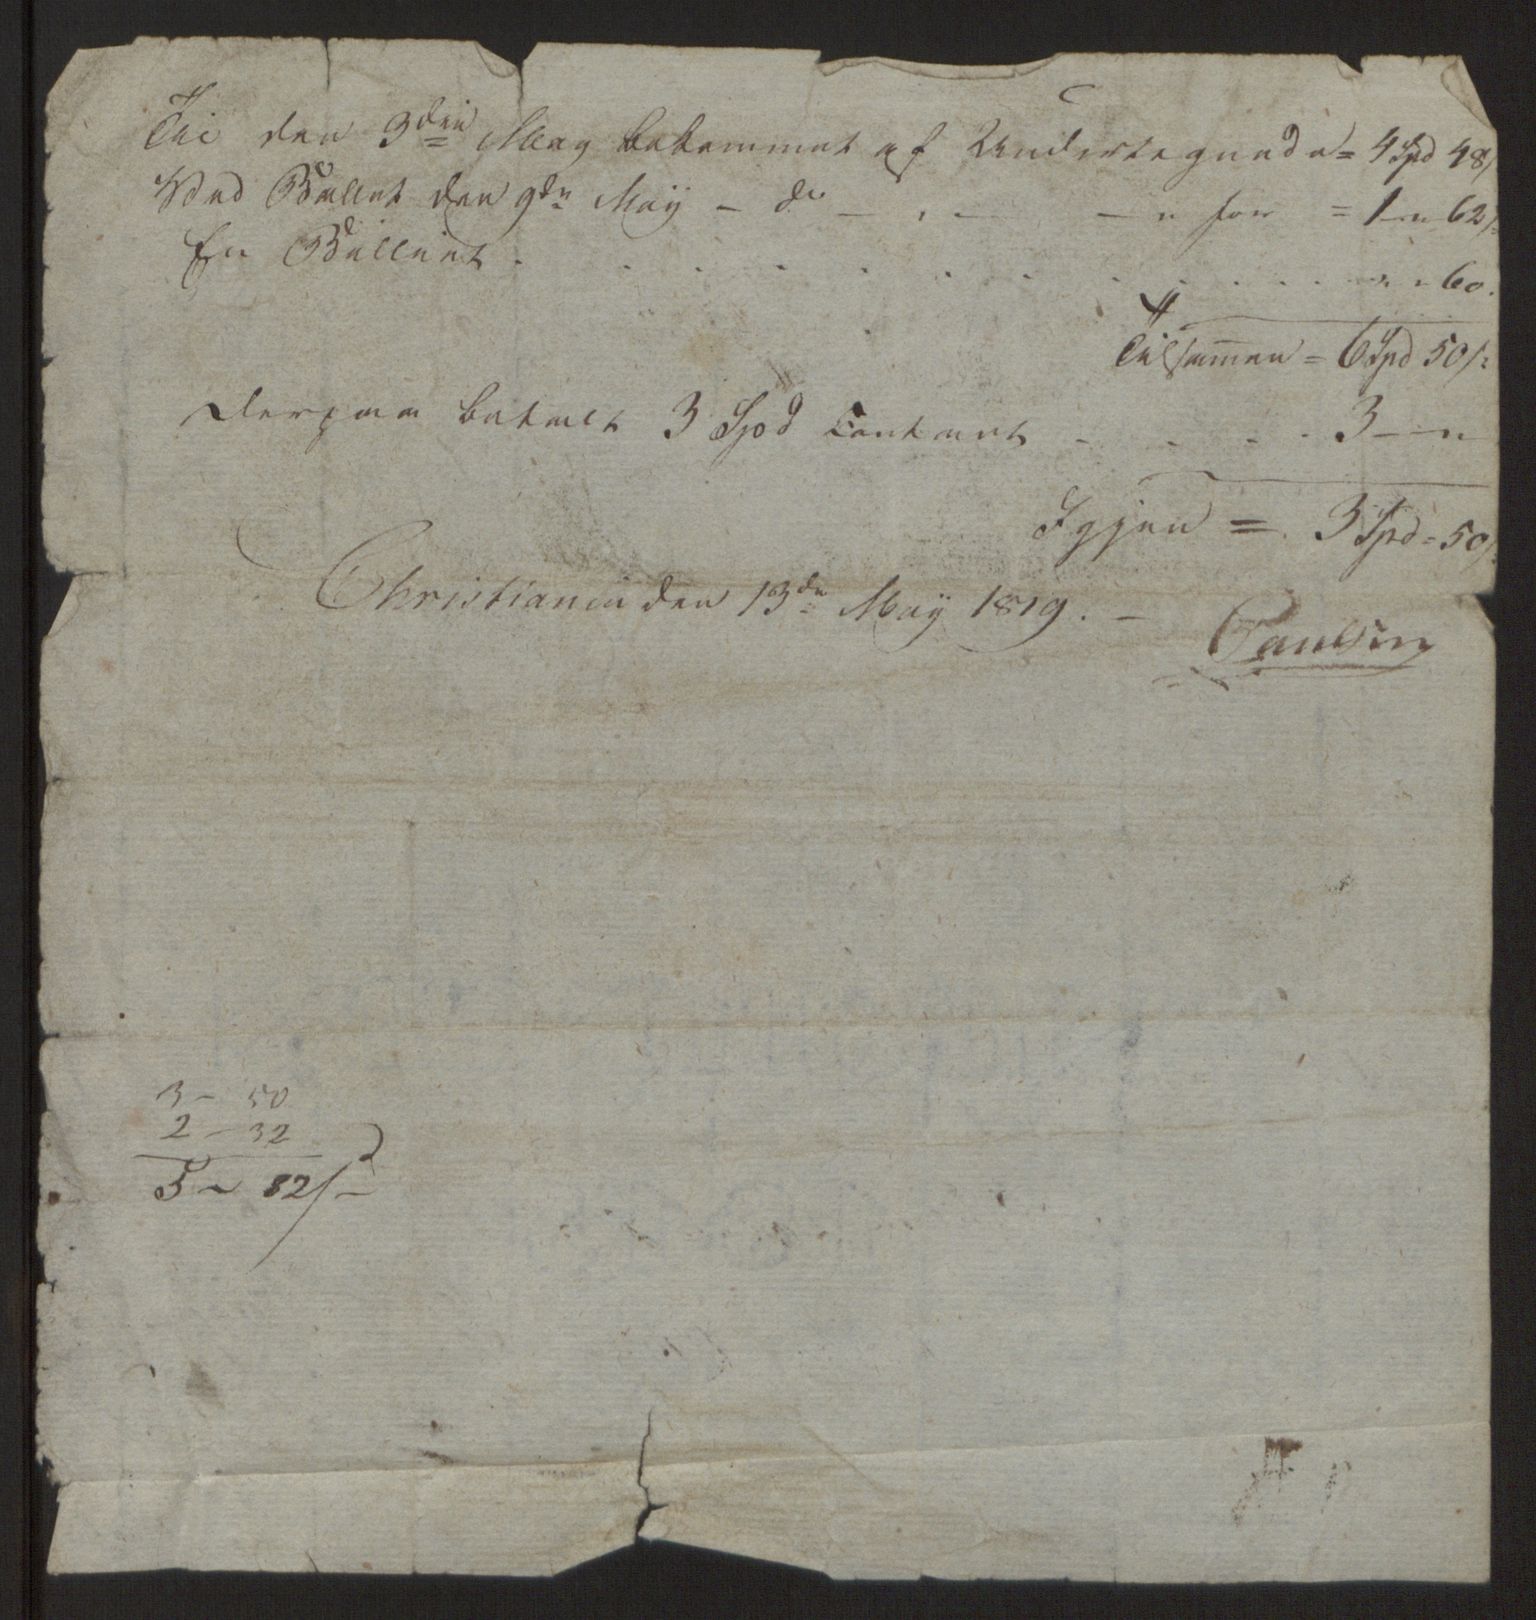 Til den 3den May bekommet af Undertegnede = 4 Spd 48/
Ved Ballet den 9de May — do — " — — " for = 1 — " 62/:
En Billiet . . . . . . . . . . . . " " 60.
Tilsam̄en = 6 Spd 50/:
Derpaa betalt 3 Spd Contant . . . . 3 — "
Igjen = 3 Spd = 50/
Christiania den 13de May 1819. —
Paulsen
3 — 50
2 — 32
5 — 82/—